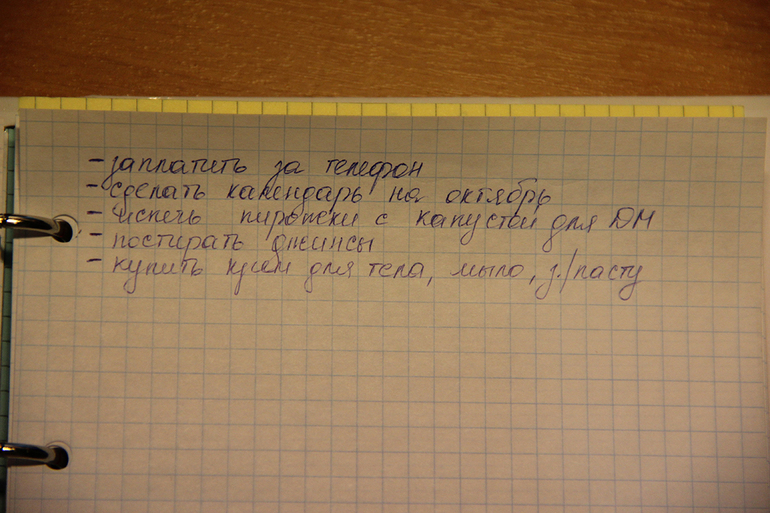 - заплатить за телефон
- сделать календарь на октябрь
- испечь пирожки с капустой для ДМ
- постирать джинсы
- купить крем для тела, мыло, з./пасту